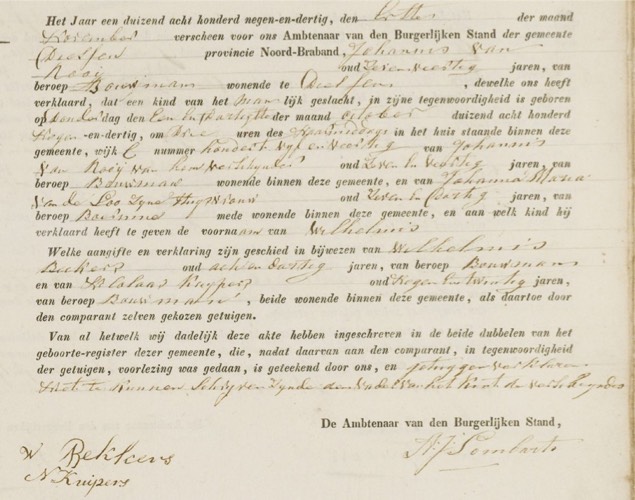 Het Jaar een duizend acht honderd negen-en-dertig, den der maand
November verscheen voor ons Ambtenaar van den Burgerlijken Stand der gemeente
provincie Noord-Braband, Johannis van
Rooij oud Zeven Veertig jaren, van
beroep Bouwman wonende te , dewelke ons heeft
verklaard, dat een kind van het Manlijk geslacht, in zijne tegenwoordigheid is geboren
op donderdag den Een en Dartigste der maand October duizend acht honderd
Negen-en-dertig, om Drie uren des in het huis staande binnen deze
gemeente, wijk C nummer honderd vyf en veertig van Johannis
van Rooij van hem verklynder oud Zeven en Veertig jaren, van
beroep Bouwman wonende binnen deze gemeente, en van Johanna Maria
van de Loo Zyne Huysvrouw oud Zeven en Dartig jaren, van
beroep Bouwinne mede wonende binnen deze gemeente, en aan welk kind hij
verklaard heeft te geven de voornaam van Wilhelmis
Welke aangifte en verklaring zijn geschied in bijwezen van Wilhelmis
Beekers oud acht en Dartig jaren, van beroep Bouwman
en van Nikolaas Kuypers oud Negen en twintig jaren,
van beroep Bouwman, beide wonende binnen deze gemeente, als daartoe door
den comparant zelven gekozen getuigen.
Van al hetwelk wij dadelijk deze akte hebben ingeschreven in de beide dubbelen van het
geboorte-register dezer gemeente, die, nadat daarvan aan den comparant, in tegenwoordigheid
der getuigen, voorlezing was gedaan, is geteekend door ons, en getuygen verklarende
niet te kunnen Schryven Zynde den Vader van het Kint de verklynder
De Ambtenaar van den Burgerlijken Stand,
W Bekkers
N Kuipers